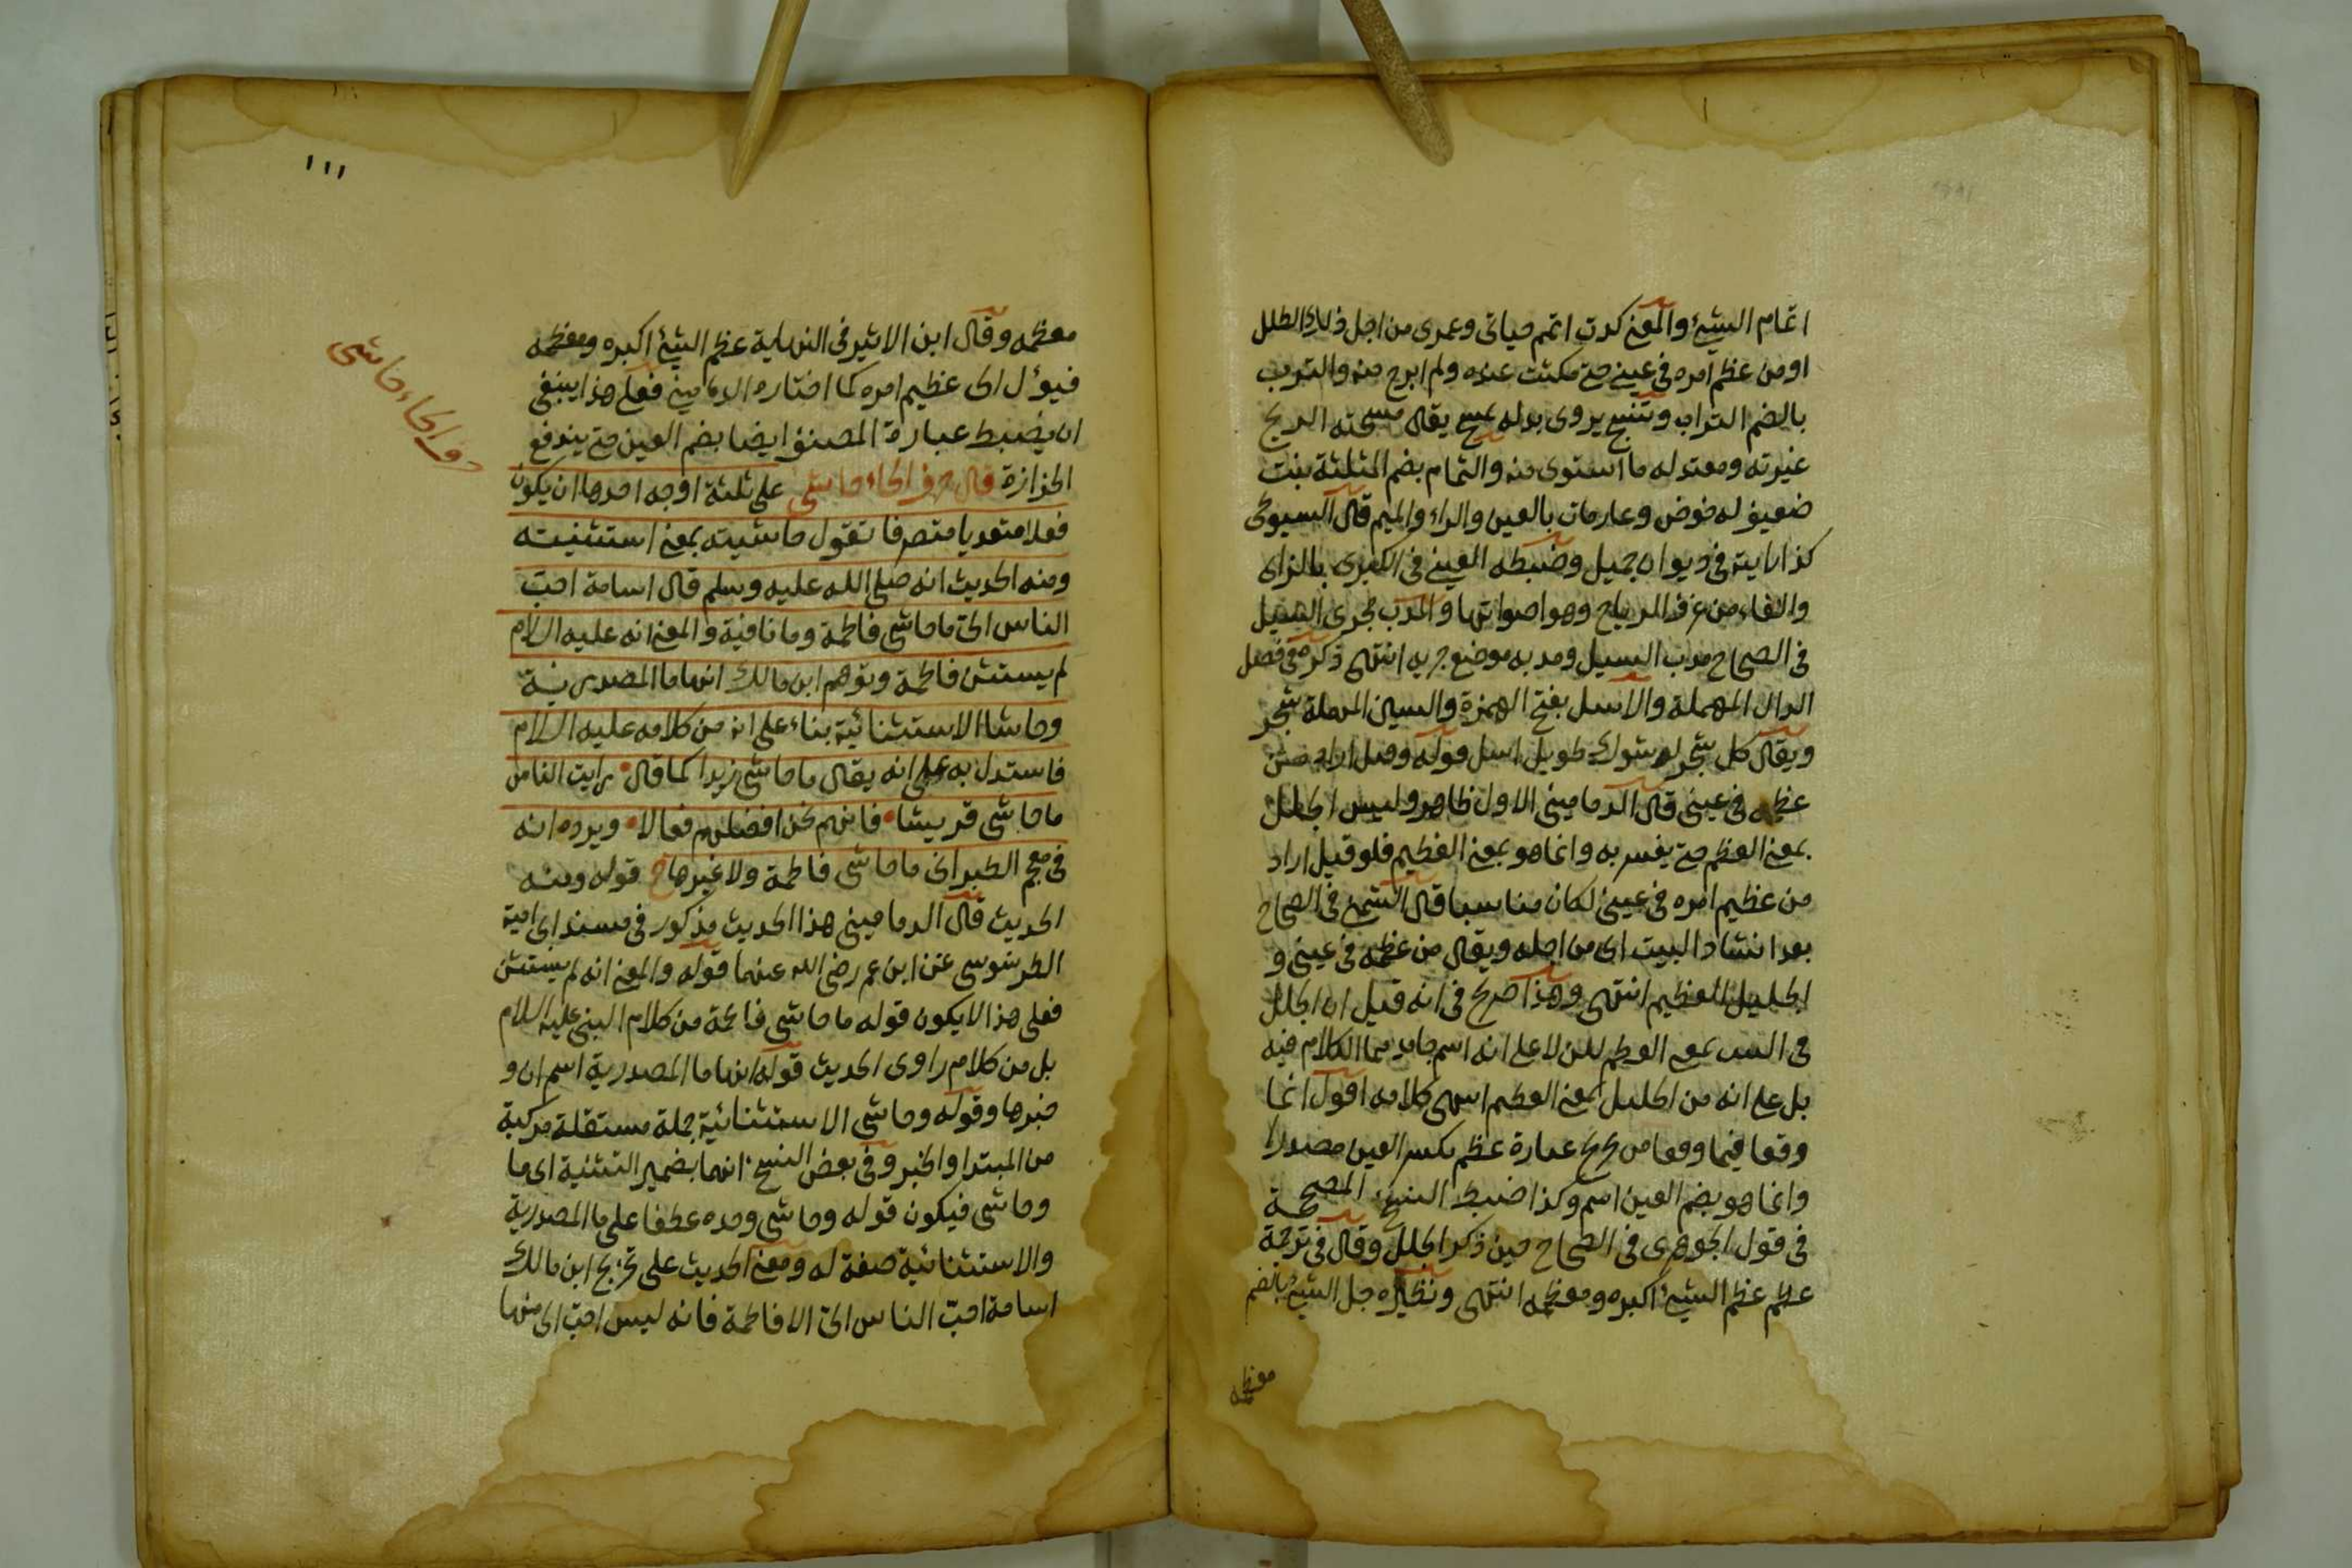 اتمام الشئ والمعنى كدت اتم حياتى وعمرى من اجل ذلك الطلل
او من عظم امره فى عينى حتى مكثت عنده ولم ابرح منه والترب
بالضم التراب وتنسج يروى بدله تمسح يقال مسحته الريح
غيرته ومعتدله ما استوى منه والثمام بضم المثلثة نبت
ضعيف له خوض وعارمات بالعين والراء والميم قال السيوطى
كذا رايته فى ديوان جميل وضبطه العينى فى الكبرى بالزاى
والفاء من عزف الرياح وهو اصواتها والمدب مجرى السيل
فى الصحاح مدب السيل ومدبه موضع جريه انتهى ذكره فى فصل
الدال المهملة والاسل بفتح الهمزة والسين المهملة شجر
ويقال كل شجر له شوك طويل اسل قوله وقيل اراد من
عظمه فى عينى قال الدمامينى الاول ظاهر وليس الجلل
بمعنى العظم حتى يفسر به وانما هو بمعنى العظيم فلو قيل اراد
من عظيم امره فى عينى لكان مناسبا قال الشمنى فى الصحاح
بعد انشاد البيت اى من اجله ويقال من عظمه فى عينى و
الجليل العظيم انتهى وهذا صريح فى انه قيل ان الجلل
فى البيت بمعنى العظم لكن لا على انه اسم جامد مما الكلام فيه
بل على انه من الجليل بمعنى العظيم انتهى كلامه اقول انما
وقعا فيما وقعا من عبارة عظم بكسر العين مصدرا
وانما هو بضم العين اسم وكذا ضبط النسخ المصححة
فى قول الجوهرى فى الصحاح حين ذكر الجلل وقال فى ترجمة
عظم عظم الشئ اكبره ومعظمه انتهى ونظيره جل الشئ بالضم
معظمه
١١١
معظمه وقال ابن الاثير فى النهاية عظم الشئ اكبره ومعظمه
فيؤل الى عظيم امره كما اختاره الدمامينى فعلى هذا ينبغى
ان يضبط عبارة المصنف ايضا بضم العين حتى يندفع
الحزازة قال حرف الحاء حاشى على ثلثة اوجه احدها ان يكون
حرف الحاء حاشى
فعلا متعديا متصرفا تقول حاشيته بمعنى استثنيته
ومنه الحديث انه صلى الله عليه وسلم قال اسامة احب
الناس الى ما حاشى فاطمة وما نافية والمعنى انه عليه السلام
لم يستثن فاطمة وتوهم ابن مالك انها ما المصدرية
وحاشا الاستثنائية بناء على انه من كلامه عليه السلام
فاستدل به على انه يقال ما حاشى زيدا كما قال رايت الناس
ما حاشى قريشا فانهم نحن افضلهم فعالا ويرده انه
فى معجم الطبرانى ما حاشى فاطمة ولا غيرها ح قوله ومنه
الحديث قال الدمامينى هذا الحديث مذكور فى مسند ابى امية
الطرسوسى عن ابن عمر رضى الله عنهما قوله والمعنى انه لم يستثن
فعلى هذا لا يكون قوله ما حاشى فاطمة من كلام النبى عليه السلام
بل من كلام راوى الحديث قوله انها ما المصدرية اسم ان و
خبرها وقوله وحاشى الاستثنائية جملة مستقلة مركبة
من المبتدا والخبر وفى بعض النسخ انهما بضمير التثنية اى ما
وحاشى فيكون قوله وحاشى وحده عطفا على ما المصدرية
والاستثنائية صفة له ومعنى الحديث على تخريج ابن مالك
اسامة احب الناس الى الا فاطمة فانه ليس احب الى منها